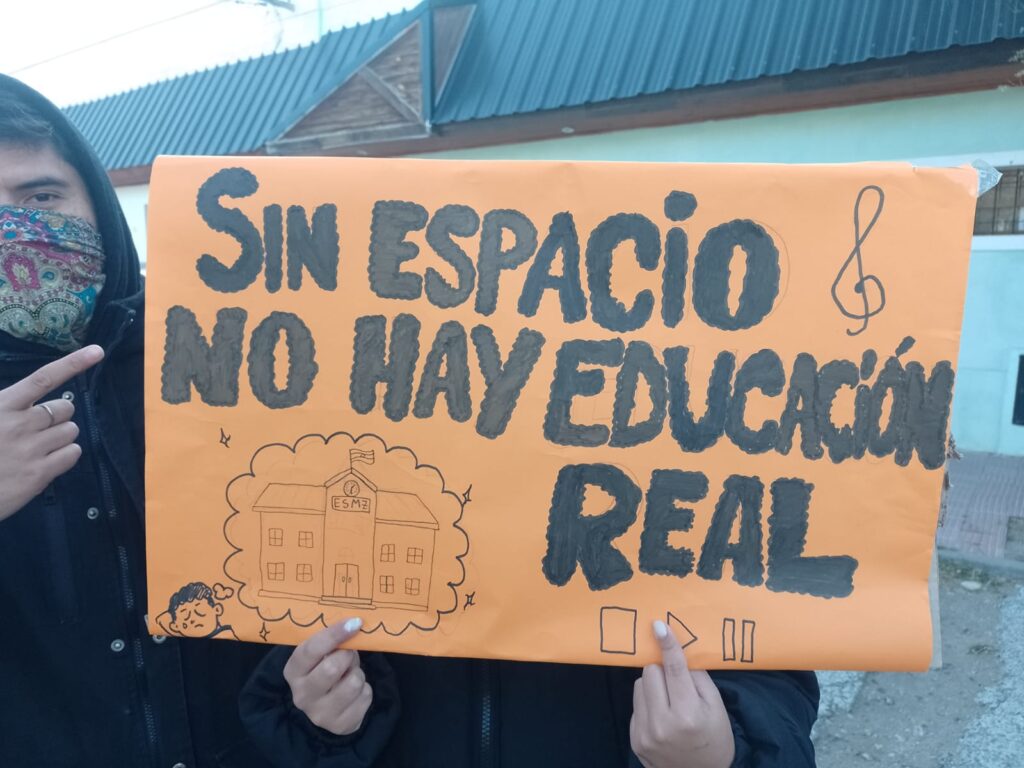 SIN ESPACIO
NO HAY EDUCACIÓN
REAL
ESMZ